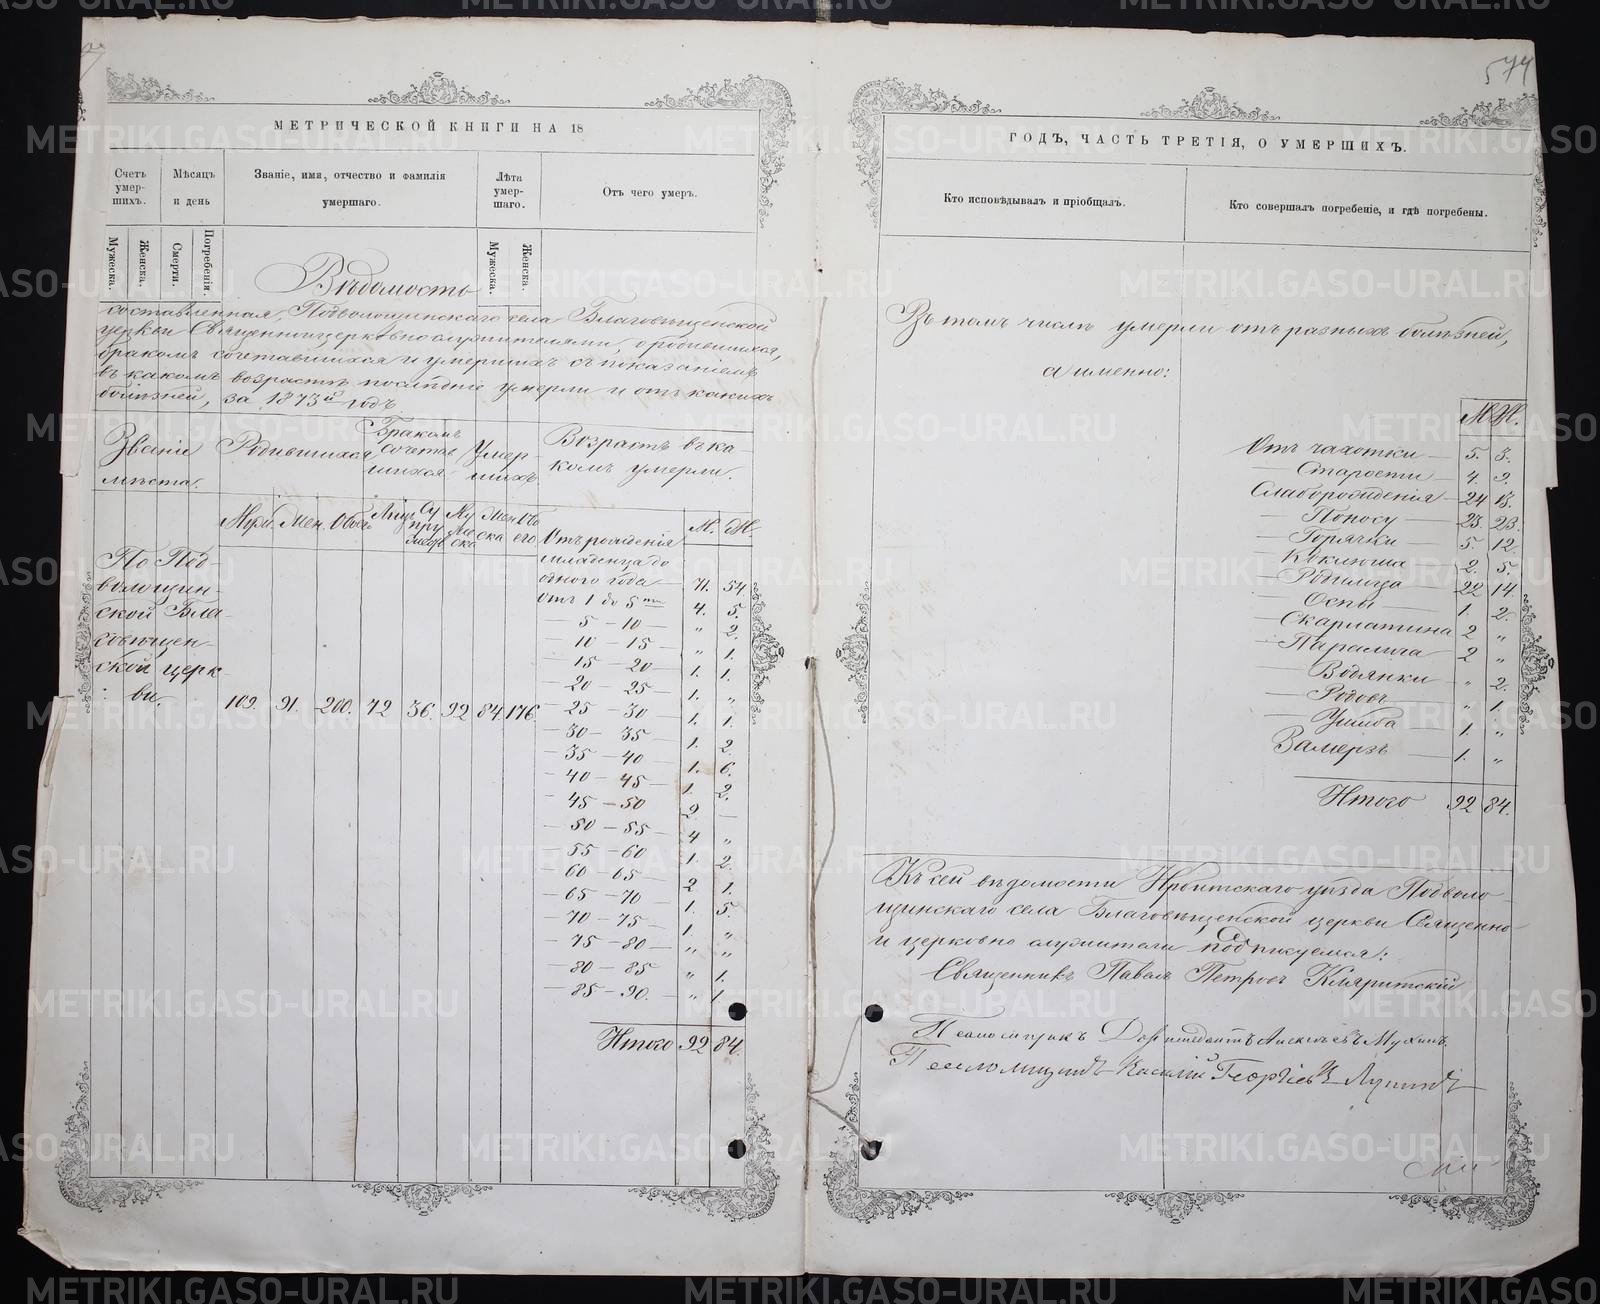 574
МЕТРИЧЕСКОЙ КНИГИ НА 18
Счетъ умер-шихъ.
Мѣсяцъ и день
Званіе, имя, отчество и фамилія умершаго.
Лѣта умер-шаго.
Отъ чего умеръ.
Мужеска.
Женска.
Смерти.
Погребенія.
Мужеска.
Женска.
Вѣдомость
составленная, Подволощинскаго села Благовѣщенской
церкви Священноцерковнослужителями, о родившихся,
бракомъ сочетавшихся и умершихъ съ показаніемъ
въ какомъ возрастѣ послѣдніе умерли и отъ какихъ
болѣзней, за 1873й годъ
Званіе мѣста.
Родившихся
Бракомъ сочетав шихся
Умер-шихъ
Возрастъ въ ка-комъ умерли.
Муж. Жен. Обоего
Лицъ Су пру жествъ
Му же ска
Женска Обоего
М. Ж.
По Под-
волощин-
ской Бла-
говѣщен-
ской церк-
ви.
109. 91. 200. 72 36. 92 84. 176.
Отъ рожденія
младенца до
одного года — 71. 54.
Отъ 1 до 5ти 4. 5.
— 5 — 10 — „ 2.
— 10 — 15 — „ 1.
— 15 — 20 — 1. 1.
— 20 — 25 — 1. „
— 25 — 30 1. 1.
— 30 — 35 1. 2.
— 35 — 40 — 1. 6.
— 40 — 45 1. 2.
— 45 — 50 2. —
— 50 — 55 — 4 „
— 55 — 60 1. 2.
— 60 — 65 — 2 1.
— 65 — 70 — 1. 5.
— 70 — 75 — 1. „
— 75 — 80 — „ „
— 80 — 85 „ 1.
— 85 — 90. — „ 1
Итого 92 84.
ГОДЪ, ЧАСТЬ ТРЕТІЯ, О УМЕРШИХЪ.
Кто исповѣдывалъ и пріобщалъ.
Кто совершалъ погребеніе, и гдѣ погребены.
Въ томъ числѣ умерли отъ разныхъ болѣзней,
а именно:
М. Ж.
Отъ чахотки — 5. 3.
— Старости — 4. 9.
Слаборожденія — 24 13.
— Поносу — 23. 23.
— Горячки — 5. 12.
Коклюша 2. 5.
— Родимца 22 14.
— Оспы — 1. 2.
— Скарлатина 2 „
— Паралича 2 „
Водянки — „ 2.
— Родовъ „ 1.
— Ушиба 1. „
Замерзъ — 1. „
Итого 92 84.
Къ сей вѣдомости Ирбитскаго уѣзда Подволо-
щинскаго села Благовѣщенской церкви Священно
и церковно служители подписуемся:
Священникъ Павелъ Петровъ
Псаломщикъ Мухинъ.
Псаломщикъ Василій Георгіевъ
METRIKI.GASO-URAL.RU